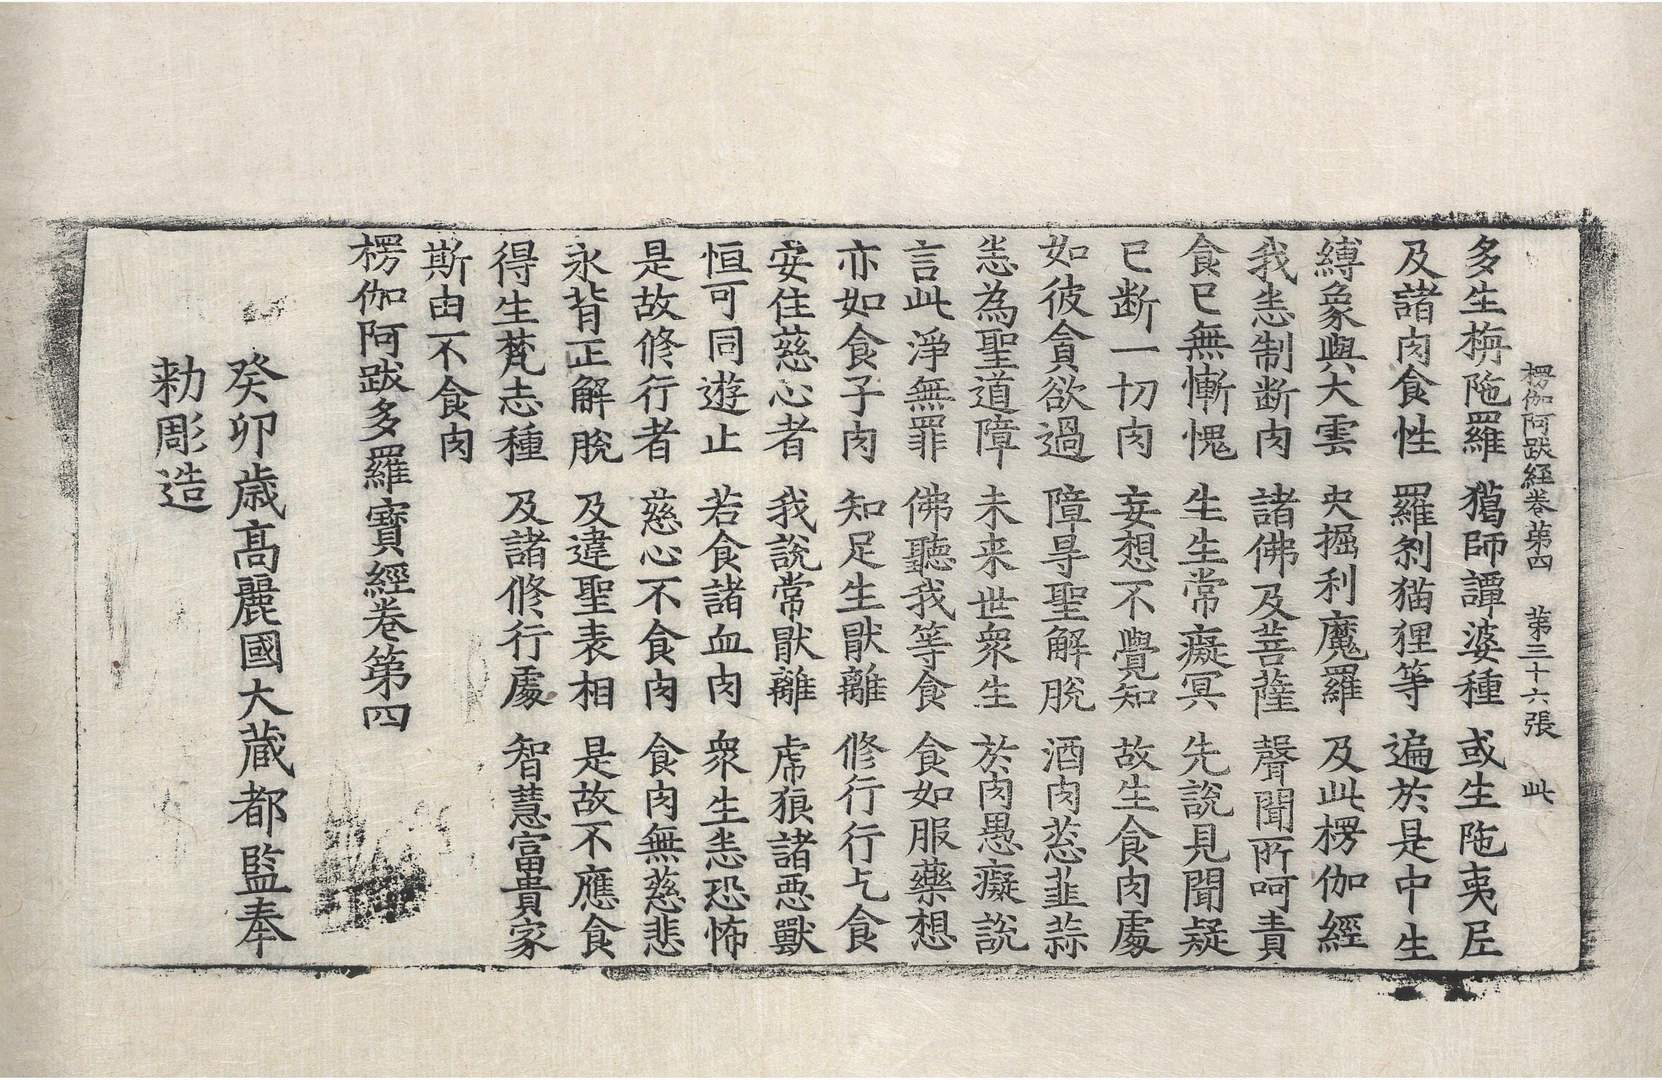 楞伽阿跋經卷第四 第三十六張 此
多生旃陁羅 獦師譚婆種 或生陁夷尼
及諸肉食性 羅刹猫狸等 遍於是中生
縛象與大雲 央掘利魔羅 及此楞伽經
我悉制断肉 諸佛及菩薩 聲聞所呵責
食已無慚愧 生生常癡冥 先說見聞疑
已断一切肉 妄想不覺知 故生食肉處
如彼貪欲過 障㝵聖解脫 酒肉葱韮蒜
悉為聖道障 未来世衆生 於肉愚癡說
言此淨無罪 佛聽我等食 食如服藥想
亦如食子肉 知足生猒離 修行行乞食
安住慈心者 我說常猒離 虎狼諸惡獸
恒可同遊止 若食諸血肉 衆生悉恐怖
是故修行者 慈心不食肉 食肉無慈悲
永背正解脫 及違聖表相 是故不應食
得生梵志種 及諸修行處 智慧富貴家
斯由不食肉
楞伽阿跋多羅寶經卷第四
癸卯歳高麗國大藏都監奉
勑彫造